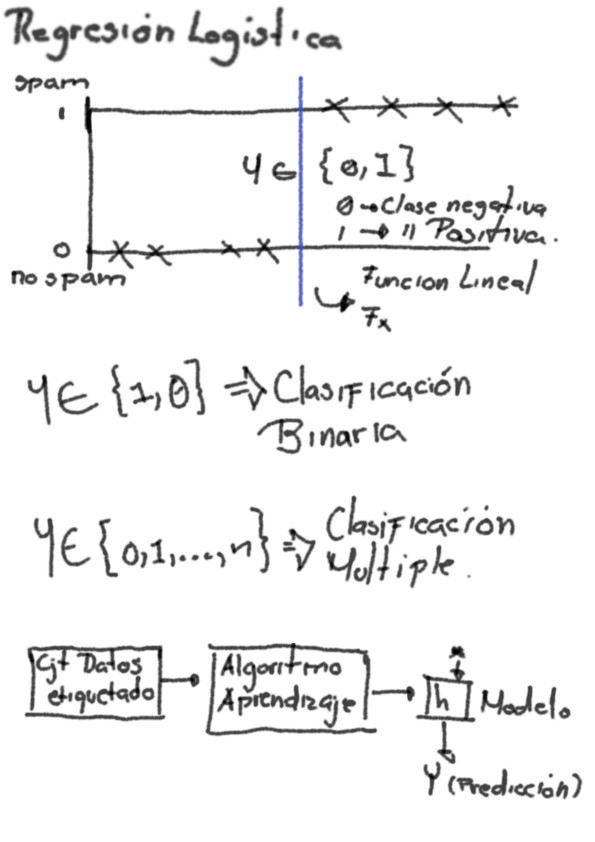 Regresión Logistica
spam
1
Y ∈ {0,1}
0 → Clase negativa
1 → " Positiva.
0
no spam
Funcion Lineal
Fx
Y ∈ {1,0} ⇒ Clasificación
Binaria
Y ∈ {0,1,...,n} ⇒ Clasificación
Multiple.
Cjt Datos
etiquetado
Algoritmo
Aprendizaje
h Modelo
Y (Predicción)